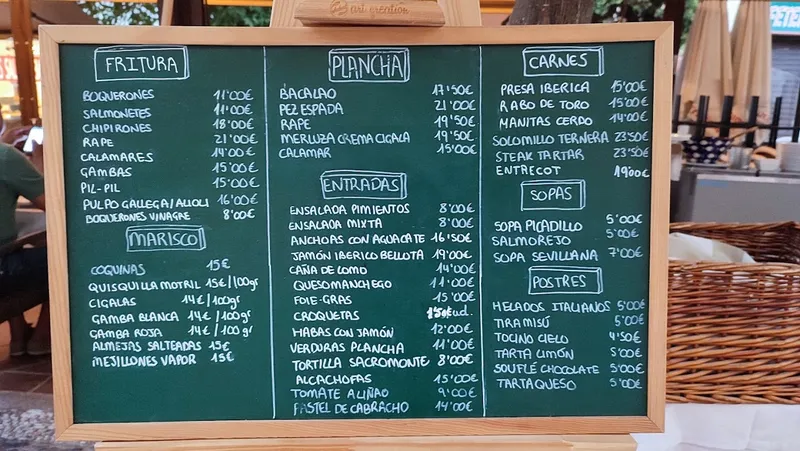 art creation
FRITURA
BOQUERONES 11'00€
SALMONETES 11'00€
CHIPIRONES 18'00€
RAPE 21'00€
CALAMARES 14'00€
GAMBAS 15'00€
PIL-PIL 15'00€
PULPO GALLEGA/ALIOLI 16'00€
BOQUERONES VINAGRE 8'00€
MARISCO
COQUINAS 15€
QUISQUILLA MOTRIL 15€/100gr
CIGALAS 14€/100gr
GAMBA BLANCA 14€/100gr
GAMBA ROJA 14€/100gr
ALMEJAS SALTEADAS 15€
MEJILLONES VAPOR 15€
PLANCHA
BACALAO 17'50€
PEZ ESPADA 21'00€
RAPE 19'50€
MERLUZA CREMA CIGALA 19'50€
CALAMAR 15'00€
ENTRADAS
ENSALADA PIMIENTOS 8'00€
ENSALADA MIXTA 8'00€
ANCHOAS CON AGUACATE 16'50€
JAMÓN IBERICO BELLOTA 19'00€
CAÑA DE LOMO 14'00€
QUESO MANCHEGO 11'00€
FOIE-GRAS 15'00€
CROQUETAS 1'50€ud.
HABAS CON JAMÓN 12'00€
VERDURAS PLANCHA 11'00€
TORTILLA SACROMONTE 8'00€
ALCACHOFAS 15'00€
TOMATE ALIÑAO 9'00€
PASTEL DE CABRACHO 14'00€
CARNES
PRESA IBERICA 15'00€
RABO DE TORO 15'00€
MANITAS CERDO 14'00€
SOLOMILLO TERNERA 23'50€
STEAK TARTAR 23'50€
ENTRECOT 19'00€
SOPAS
SOPA PICADILLO 5'00€
SALMOREJO 5'00€
SOPA SEVILLANA 7'00€
POSTRES
HELADOS ITALIANOS 5'00€
TIRAMISÚ 5'00€
TOCINO CIELO 4'50€
TARTA LIMÓN 5'00€
SOUFLÉ CHOCOLATE 5'00€
TARTA QUESO 5'00€